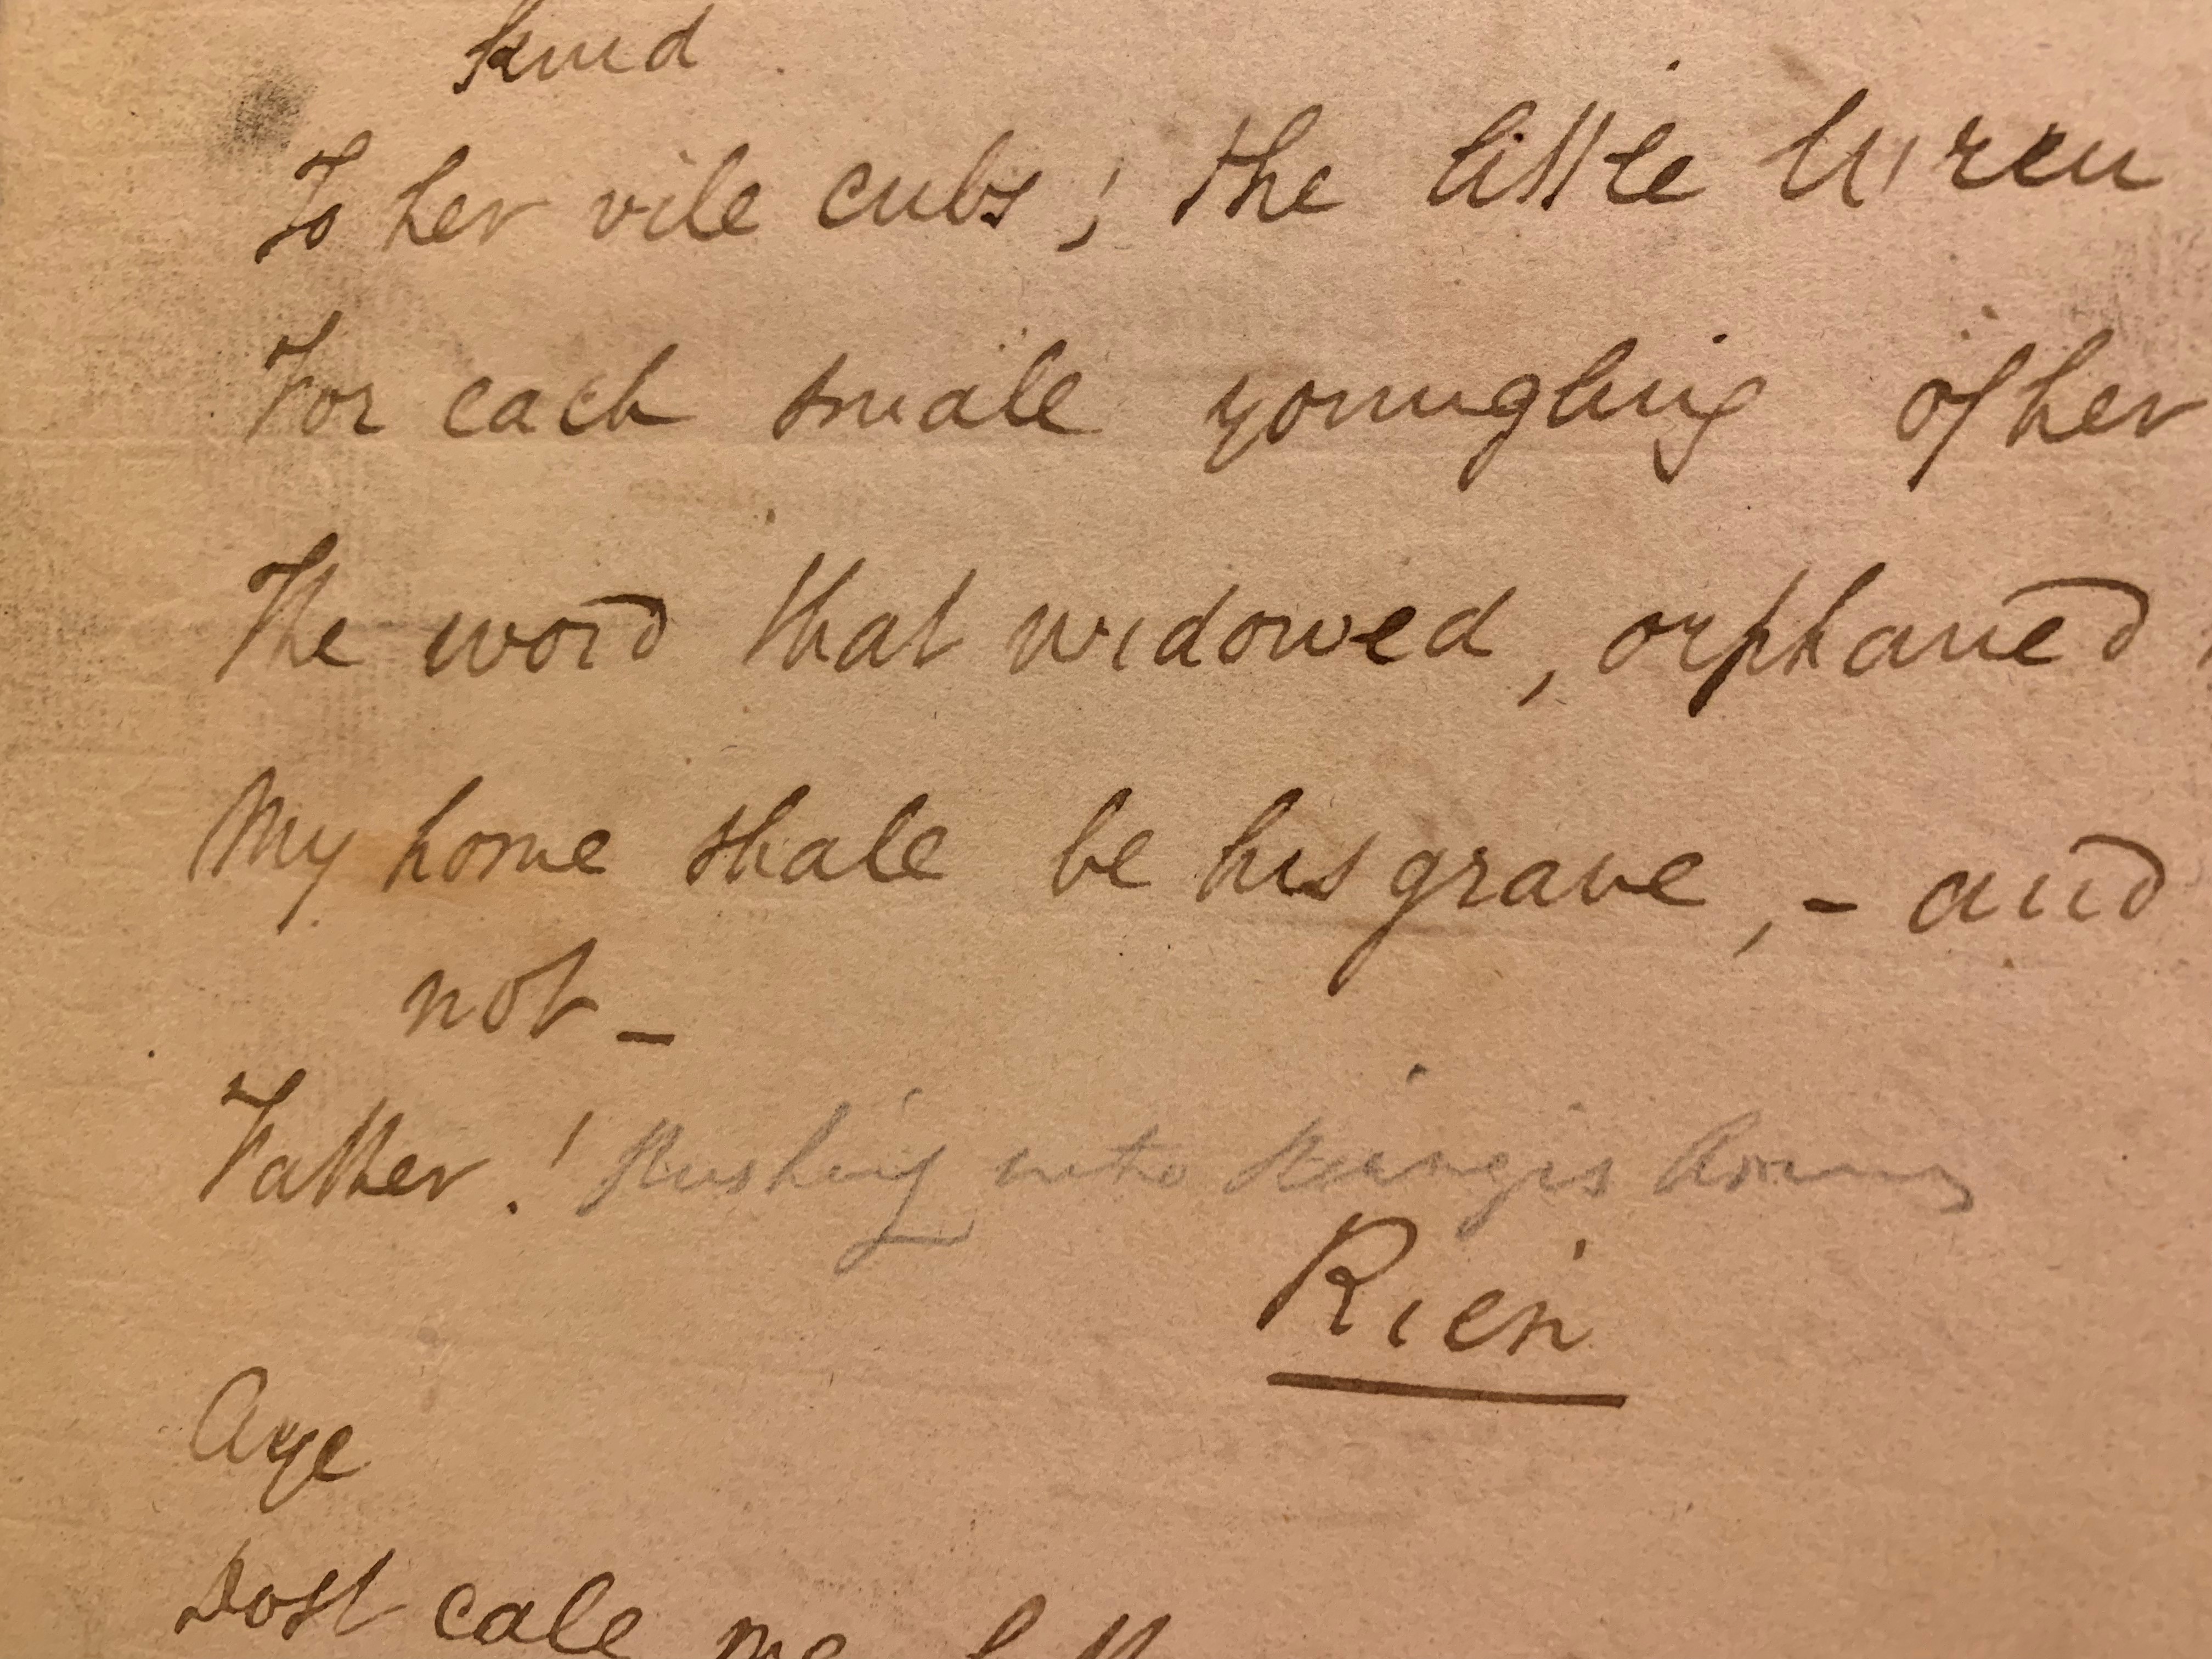 kind
To her vile cubs; the little Wren
For each small youngling of her
The word that widowed, orphaned
My home shall be his grave, - and
not -
Father! Rushing into Rienzi's arms
Rien
Aye
Dost call me